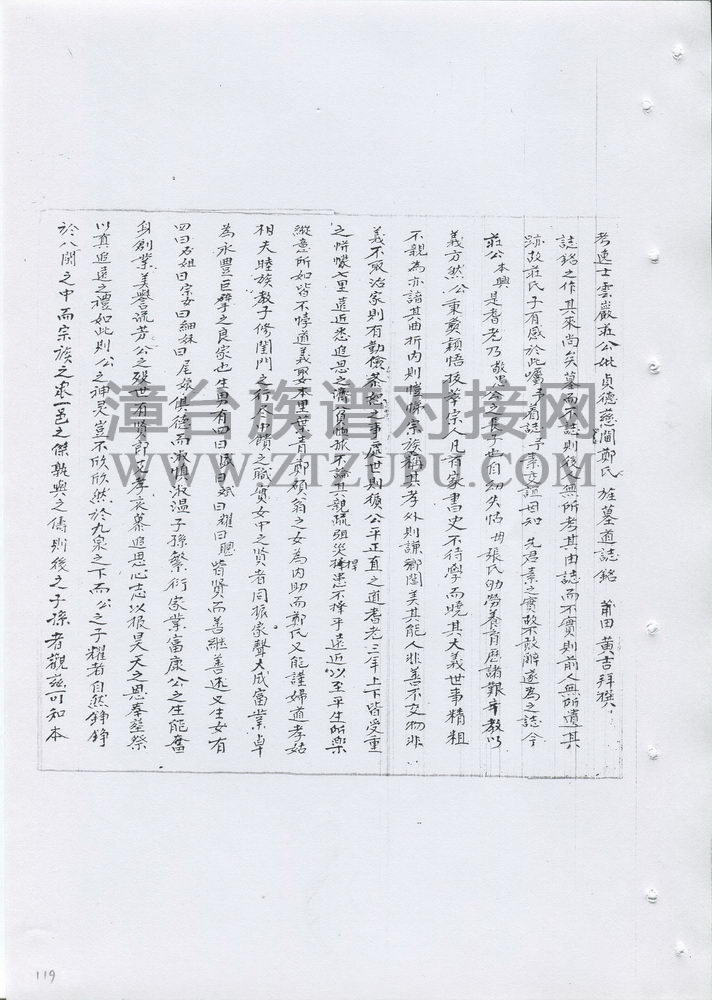 考逸士雲巖莊公妣貞德慈闈鄭氏 旌墓道誌銘 莆田 黃吉拜撰
誌銘之作其來尚矣墓而不誌則後無所考其由誌而不實則前人無所遺其
跡故莊氏子有感於此囑予為誌予素交誼因知 先君素之實故不敢辭遂為之誌今
莊公 本興 是耆老乃 公之長子也自幼失怙 毋張氏劬勞養育歷諸艱辛教以
義方然公秉賦穎悟拔萃宗人凡有家書史不待學而曉其大義世事精粗
不親為亦諳其曲折內則愷悌宗族稱其孝外則謙鄉閭美其能人非善不交物非
義不取治家則有勤儉恭恕之事處世則獲公平正直之道耆老三年上下皆受重
之恲幪七里遠近悉追思之濟貧恤孤不論其親疏殂災捍患不擇乎遠近以至平生所樂
縱意所如皆不悖道義娶本里葉青郎顧翁之女為內助而鄭氏又能謹婦道孝姑
相夫睦族教子修閨門之行尽中饋之職實女中之賢者同振家聲大成富業卓
為永豐巨擘之良家也生男有四曰盛曰斌曰耀曰聰皆賢而善繼善述又生女有
四曰名姐曰宗女曰細妹曰尾娘俱德而淑慎淑溫子孫繁衍家業富康公之生能奮
身創業美譽流芳公之殁世有賢郎又孝哀慕追思心志以报昊天之恩奉塋祭
以真追遠之禮如此則公之神灵豈不欣欣然於九泉之下而公之子耀者自然錚錚
於八閩之中而宗族之眾一邑之傑乾興之儔則後之子孫者觀茲可知本
漳台族谱对接网
WWW.ZTZUPU.COM
119